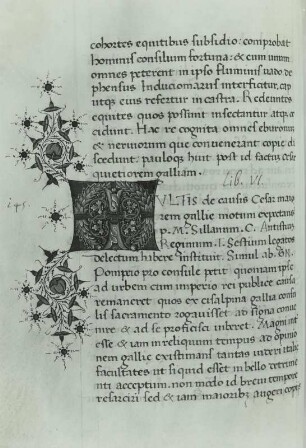 cohortes equitibus subsidio: comprobat
hominis consilium fortuna: & cum unum
omnes peterent in ipso fluminis uado de
phensus Induciomarus interficitur, cap
utq; eius refertur in castra. Redeuntes
equites quos possunt insectantur atq; oc
cidunt. Hac re cognita omnes eburonum
& neruiorum que conuenerant copie di
scedunt: pauloq; huit post id factus Cesar
quietiorem galliam.
Lib. VI.
MVLTIS de causis Cesar maio
rem gallie motum expectans
p. M. Sillanum. C. Antistium
Reginum. T. Sestium legatos
delectum habere instituit. Simul ab .GN.
Pompeio pro consule petit quoniam ipse
ad urbem cum imperio rei publice causa
remaneret quos ex cisalpina gallia consu
lis sacramento rogauisset ad signa conue
nire & ad se proficisci iuberet. Magni int
esse & iam in reliquum tempus ad opinio
nem gallie existimans tantas uideri italie
facultates ut si quid esset in bello detrime
nti acceptum non modo id breui tempore
resarciri sed & iam maioribus augeri copiis